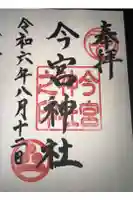 奉拝
今宮神社
今宮
神社
之印
令和六年八月十一日